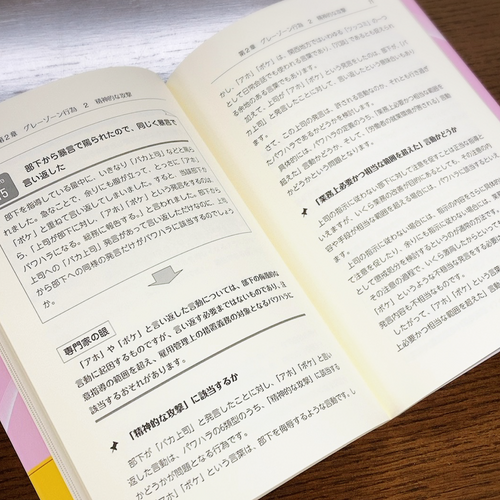 第2章 グレーゾーン行為 2 精神的な攻撃
部下から暴言で煽られたので、同じく暴言で
言い返した
部下を指導している最中に、いきなり「バカ上司」などと罵ら
れました。急なことで、余りにも腹が立って、とっさに「アホ」
「ボケ」と重ねて言い返してしまいました。すると、当該部下か
ら、「上司が部下に対し、「アホ」「ボケ」という発言をするのは、
パワハラになる。総務に報告する。」と言われました。部下から
上司への「バカ上司」発言があって言い返しただけなのに、上司
から部下への同様の発言だけがパワハラに該当するのでしょう
か。
専門家の眼
「アホ」や「ボケ」と言い返した言動については、部下の侮辱的な
言動に起因するものですが、言い返す必要まではないものであり、注
意指導の範囲を超え、雇用管理上の措置義務の対象となるパワハラに
該当するおそれがあります。
「精神的な攻撃」に該当するか
部下が「バカ上司」と発言したことに対し、「アホ」「ボケ」と言い
返した言動は、パワハラの6類型のうち、「精神的な攻撃」に該当する
かどうかが問題となる行為です。
「アホ」「ボケ」という言葉は、部下を侮辱するような言動です。し
第2章 グレーゾーン行為 2 精神的な攻撃
かし、「アホ」「ボケ」は、関西地方ではいわゆる「ツッコミ」の一つ
として日常会話でも使われる言葉であり、「冗談」であるとも捉えられ
る余地のある言葉でもあります。
加えて、上司が「アホ」「ボケ」という発言をしたのは、部下が、「バ
カ上司」と発言したことに対して、言い返したという意味合いもあり
ます。
さて、この上司の発言は、許される言動なのか、それとも行き過ぎ
たパワハラであるかどうかを検討します。
具体的には、パワハラの定義のうち、「業務上必要かつ相当な範囲を
超えた」言動かどうか、そして、「労働者の就業環境が害される」言動
かどうかという問題となります。
「業務上必要かつ相当な範囲を超えた」言動かどうか
上司の指示に従わない部下に対して注意を促すことは正当な指導と
いえますが、いくら業務の改善が目的にあるとしても、その注意の内
容や手段が相当な範囲を超える場合には、パワハラに該当し得ます。
上司の指示に従わない場合には、指示の内容をさらに具体的に伝え
て注意を促したり、余りにも指示に従わない場合には、業務命令違反
として懲戒処分を検討するというのが通常の方法です。
その注意の過程で、いくら激高したからといっても、
「ボケ」というような不穏当な発言をする必要がない
発言内容も不相当なものです。
したがって、「アホ」「ボケ」という
上必要かつ相当な範囲を超えた」言動